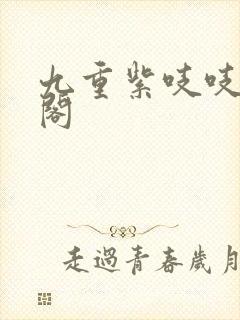 九重紫吱吱
閣
走過青春歲月